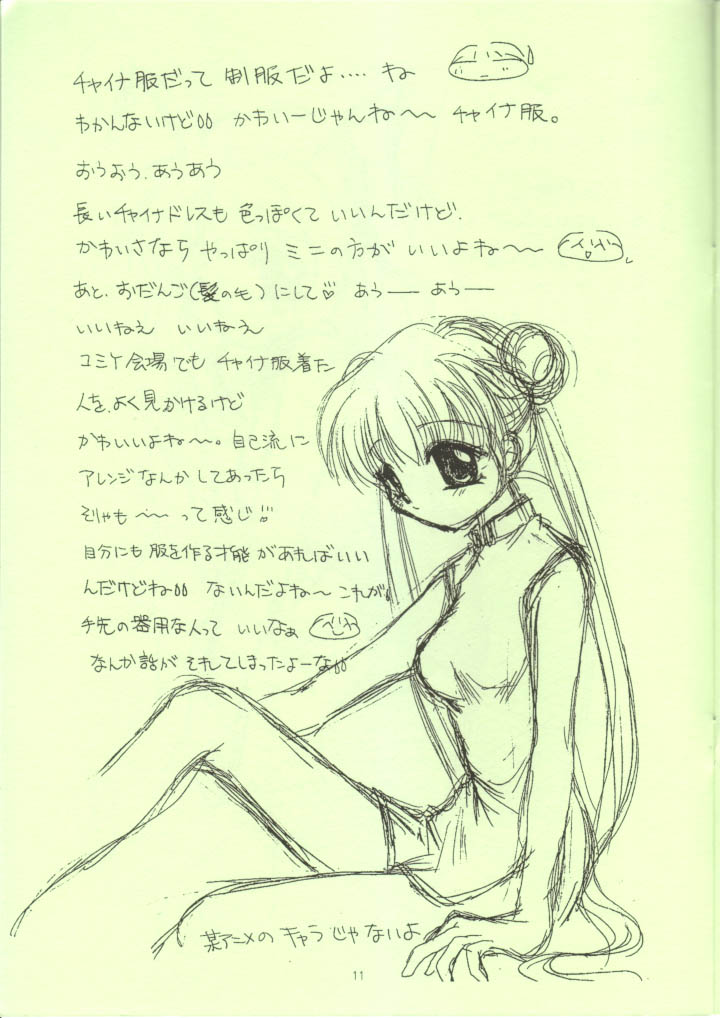 チャイナ服だって 制服だよ‥‥ ね
わかんないけど かわいーじゃんね〜〜 チャイナ服。
おうおう、あうあう
長いチャイナドレスも 色っぽくて いいんだけど、
かわいさなら やっぱり ミニの方が いいよね〜〜
あと、おだんご(髪の毛)にして♡ あうー あうー
いいねえ いいねえ
コミケ会場でも チャイナ服着た
人を、よく見かけるけど
かわいいよね〜。自己流に
アレンジなんか してあったら
そりゃも〜〜 って感じ
自分にも 服を作る才能があればいい
んだけどね ないんだよね〜 これが
手先の器用な人って いいなぁ
なんか話が それてしまったよーな
某アニメの キャラじゃないよ
11